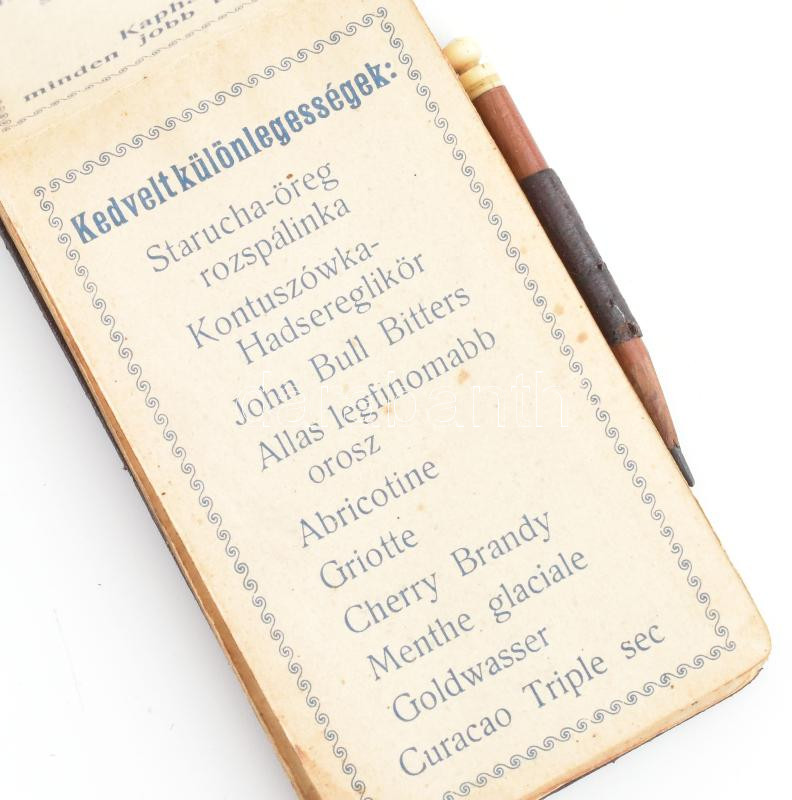 Kapha
minden jobb
Kedvelt különlegességek:
Starucha-öreg
rozspálinka
Kontuszówka-
Hadsereglikör
John Bull Bitters
Allas legfinomabb
orosz
Abricotine
Griotte
Cherry Brandy
Menthe glaciale
Goldwasser
Curacao Triple sec
darabanth